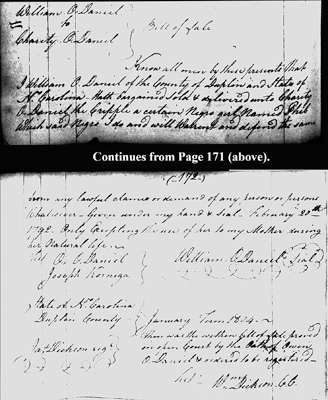 William O. Daniel
to
Charity O. Daniel
Bill of Sale
Know all men by these presents that
I William O. Daniel of the County of Duplin and State of
No. Carolina Hath bargained Sold & delivered unto Charity
O. Daniel the Cripple a certain Negro girl Named
which said Negro I do and will Warrent and defend the same
Continues from Page 171 (above).
(172)
from any lawful claim or demand of any person or persons
Whatsoever - Given under my hand & Seal. February 20th
1792. Only Excepting the use of her to my Mother during
her Natural life -
Test O. O. Daniel
William O. Daniel Seal
Joseph Kornega
State of No. Carolina
Duplin County
January Term 1824 -
Then was the within bill of Sale proved
in open Court by the Oath of Owen
O. Daniel & ordered to be registered -
Dickson regr
Test - Wm. Dickson CC